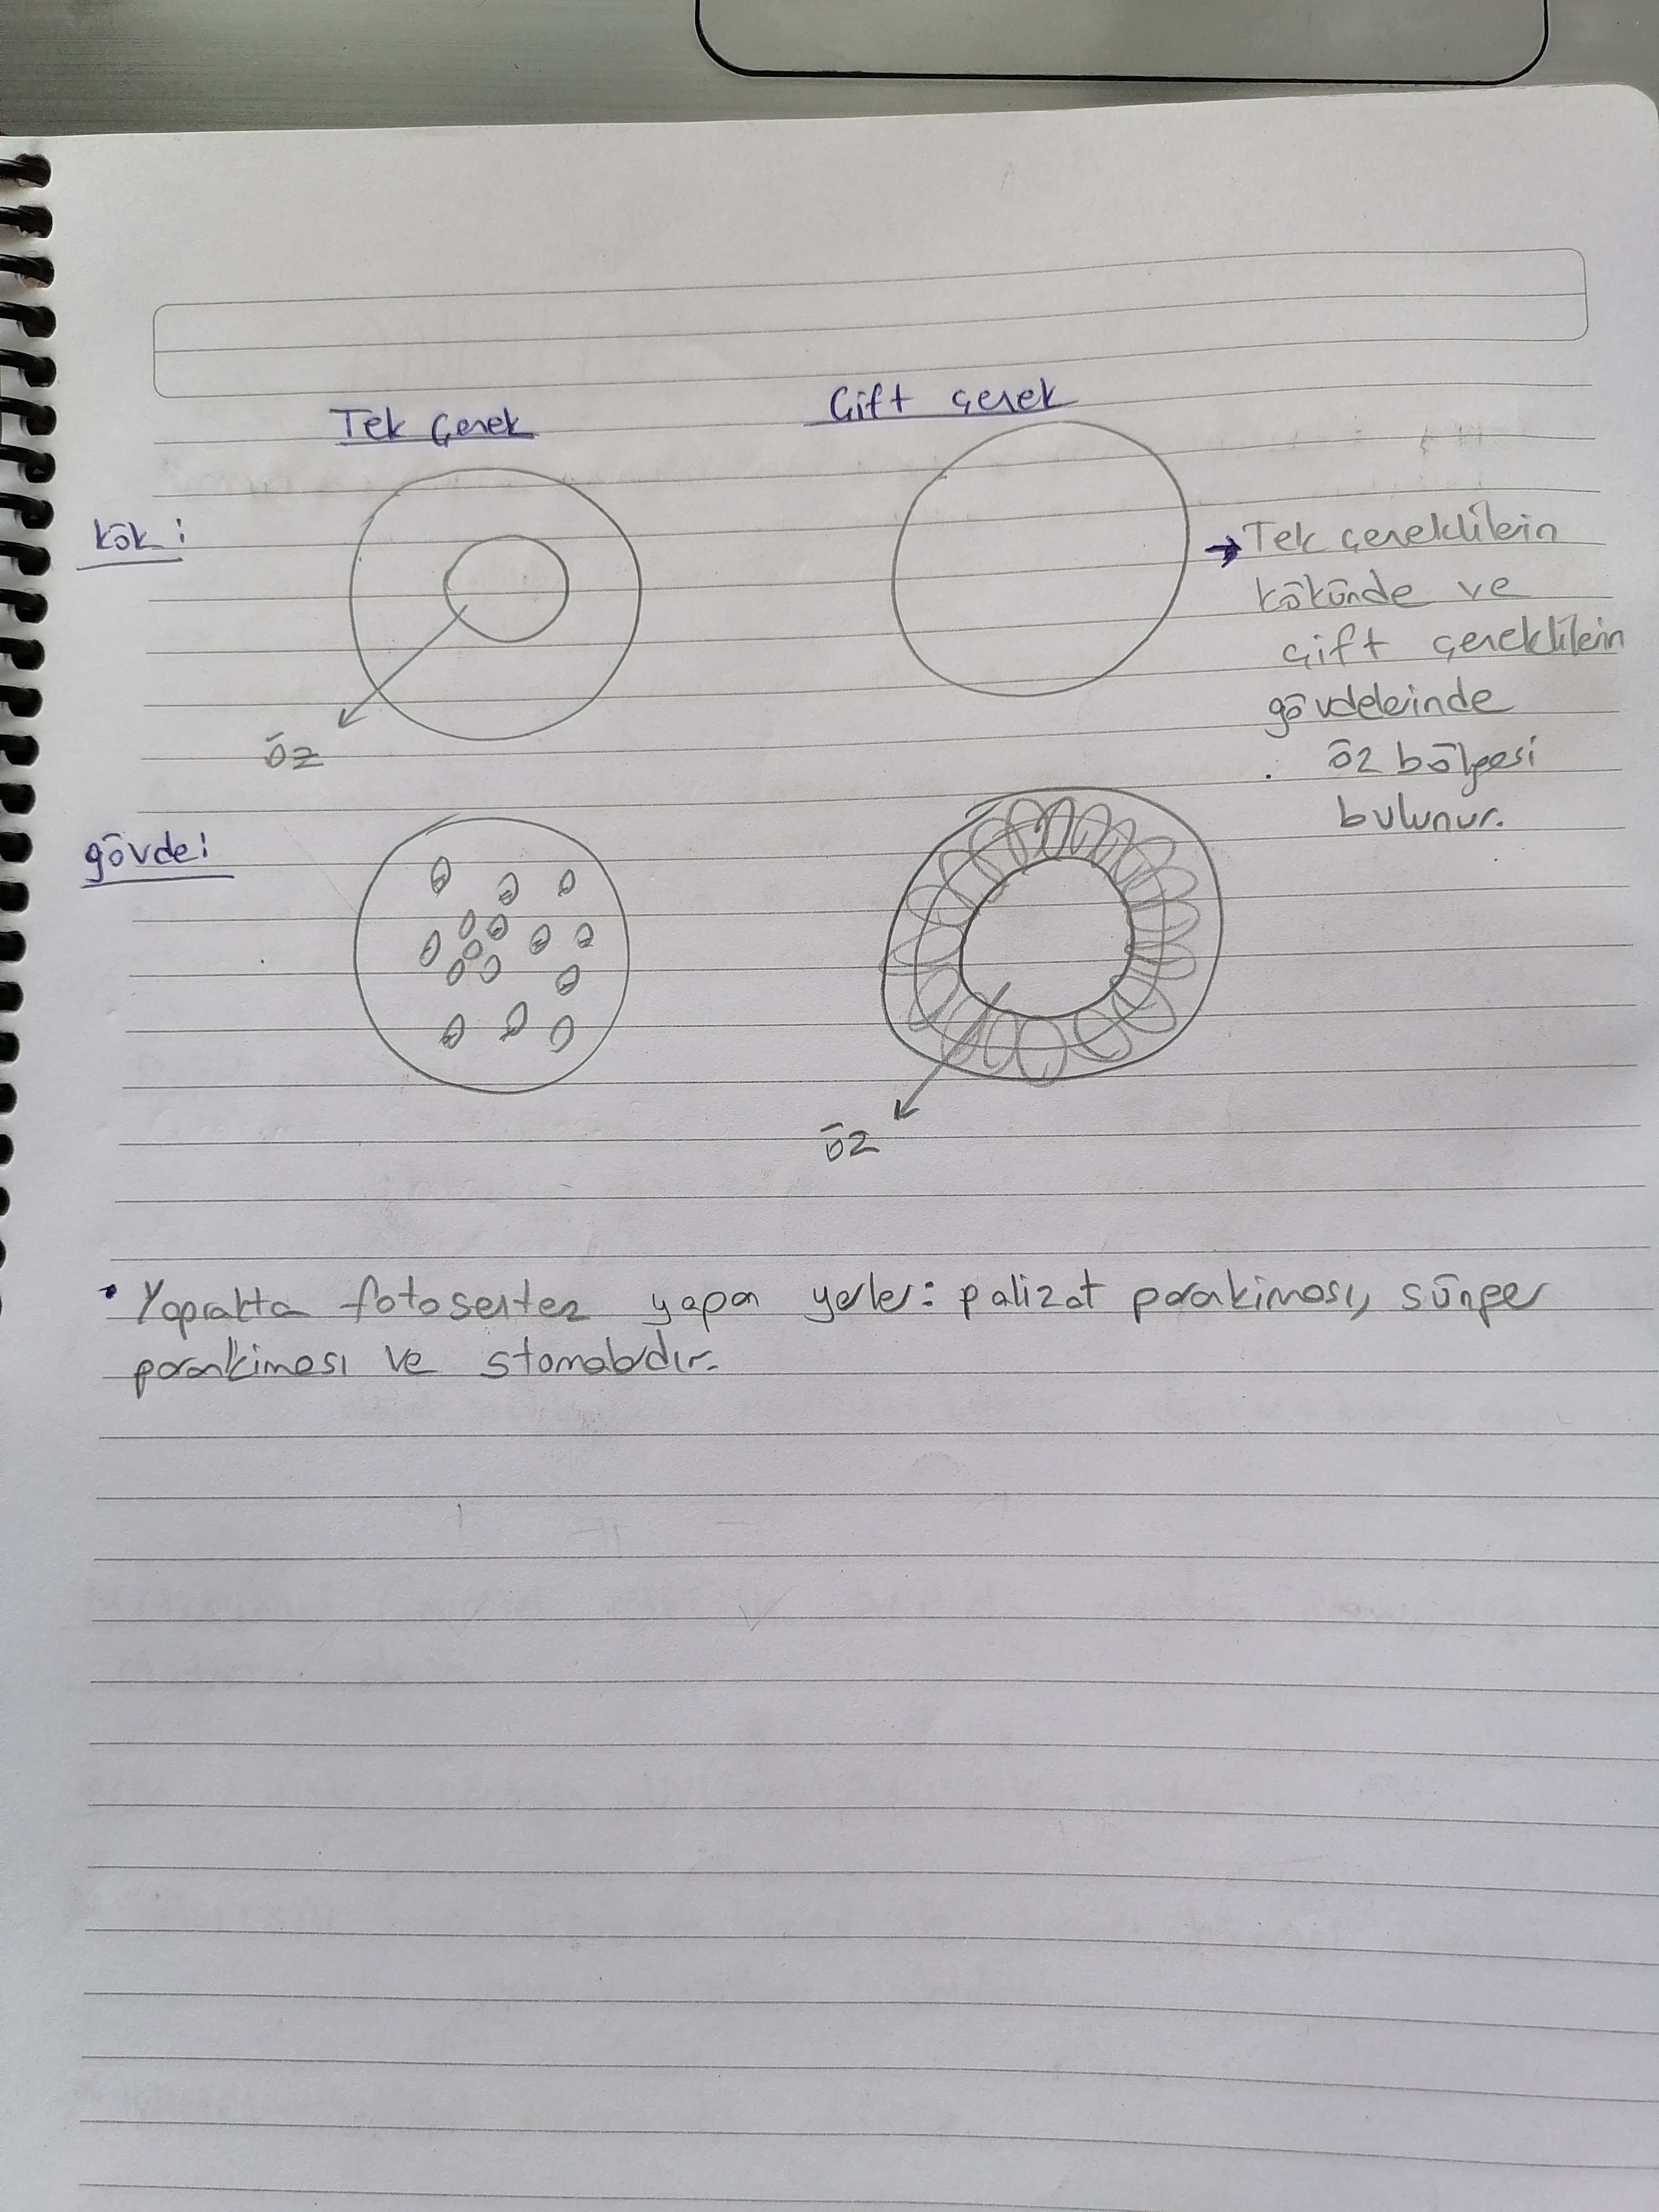 Tek Çenek
Çift çenek
kök:
→ Tek çeneklilerin
kökünde ve
çift çeneklilerin
gövdelerinde
öz bölgesi
bulunur.
öz
gövde:
öz
• Yaprakta fotosentez yapan yerler: palizat parankiması, sünger
parankiması ve stomalardır.